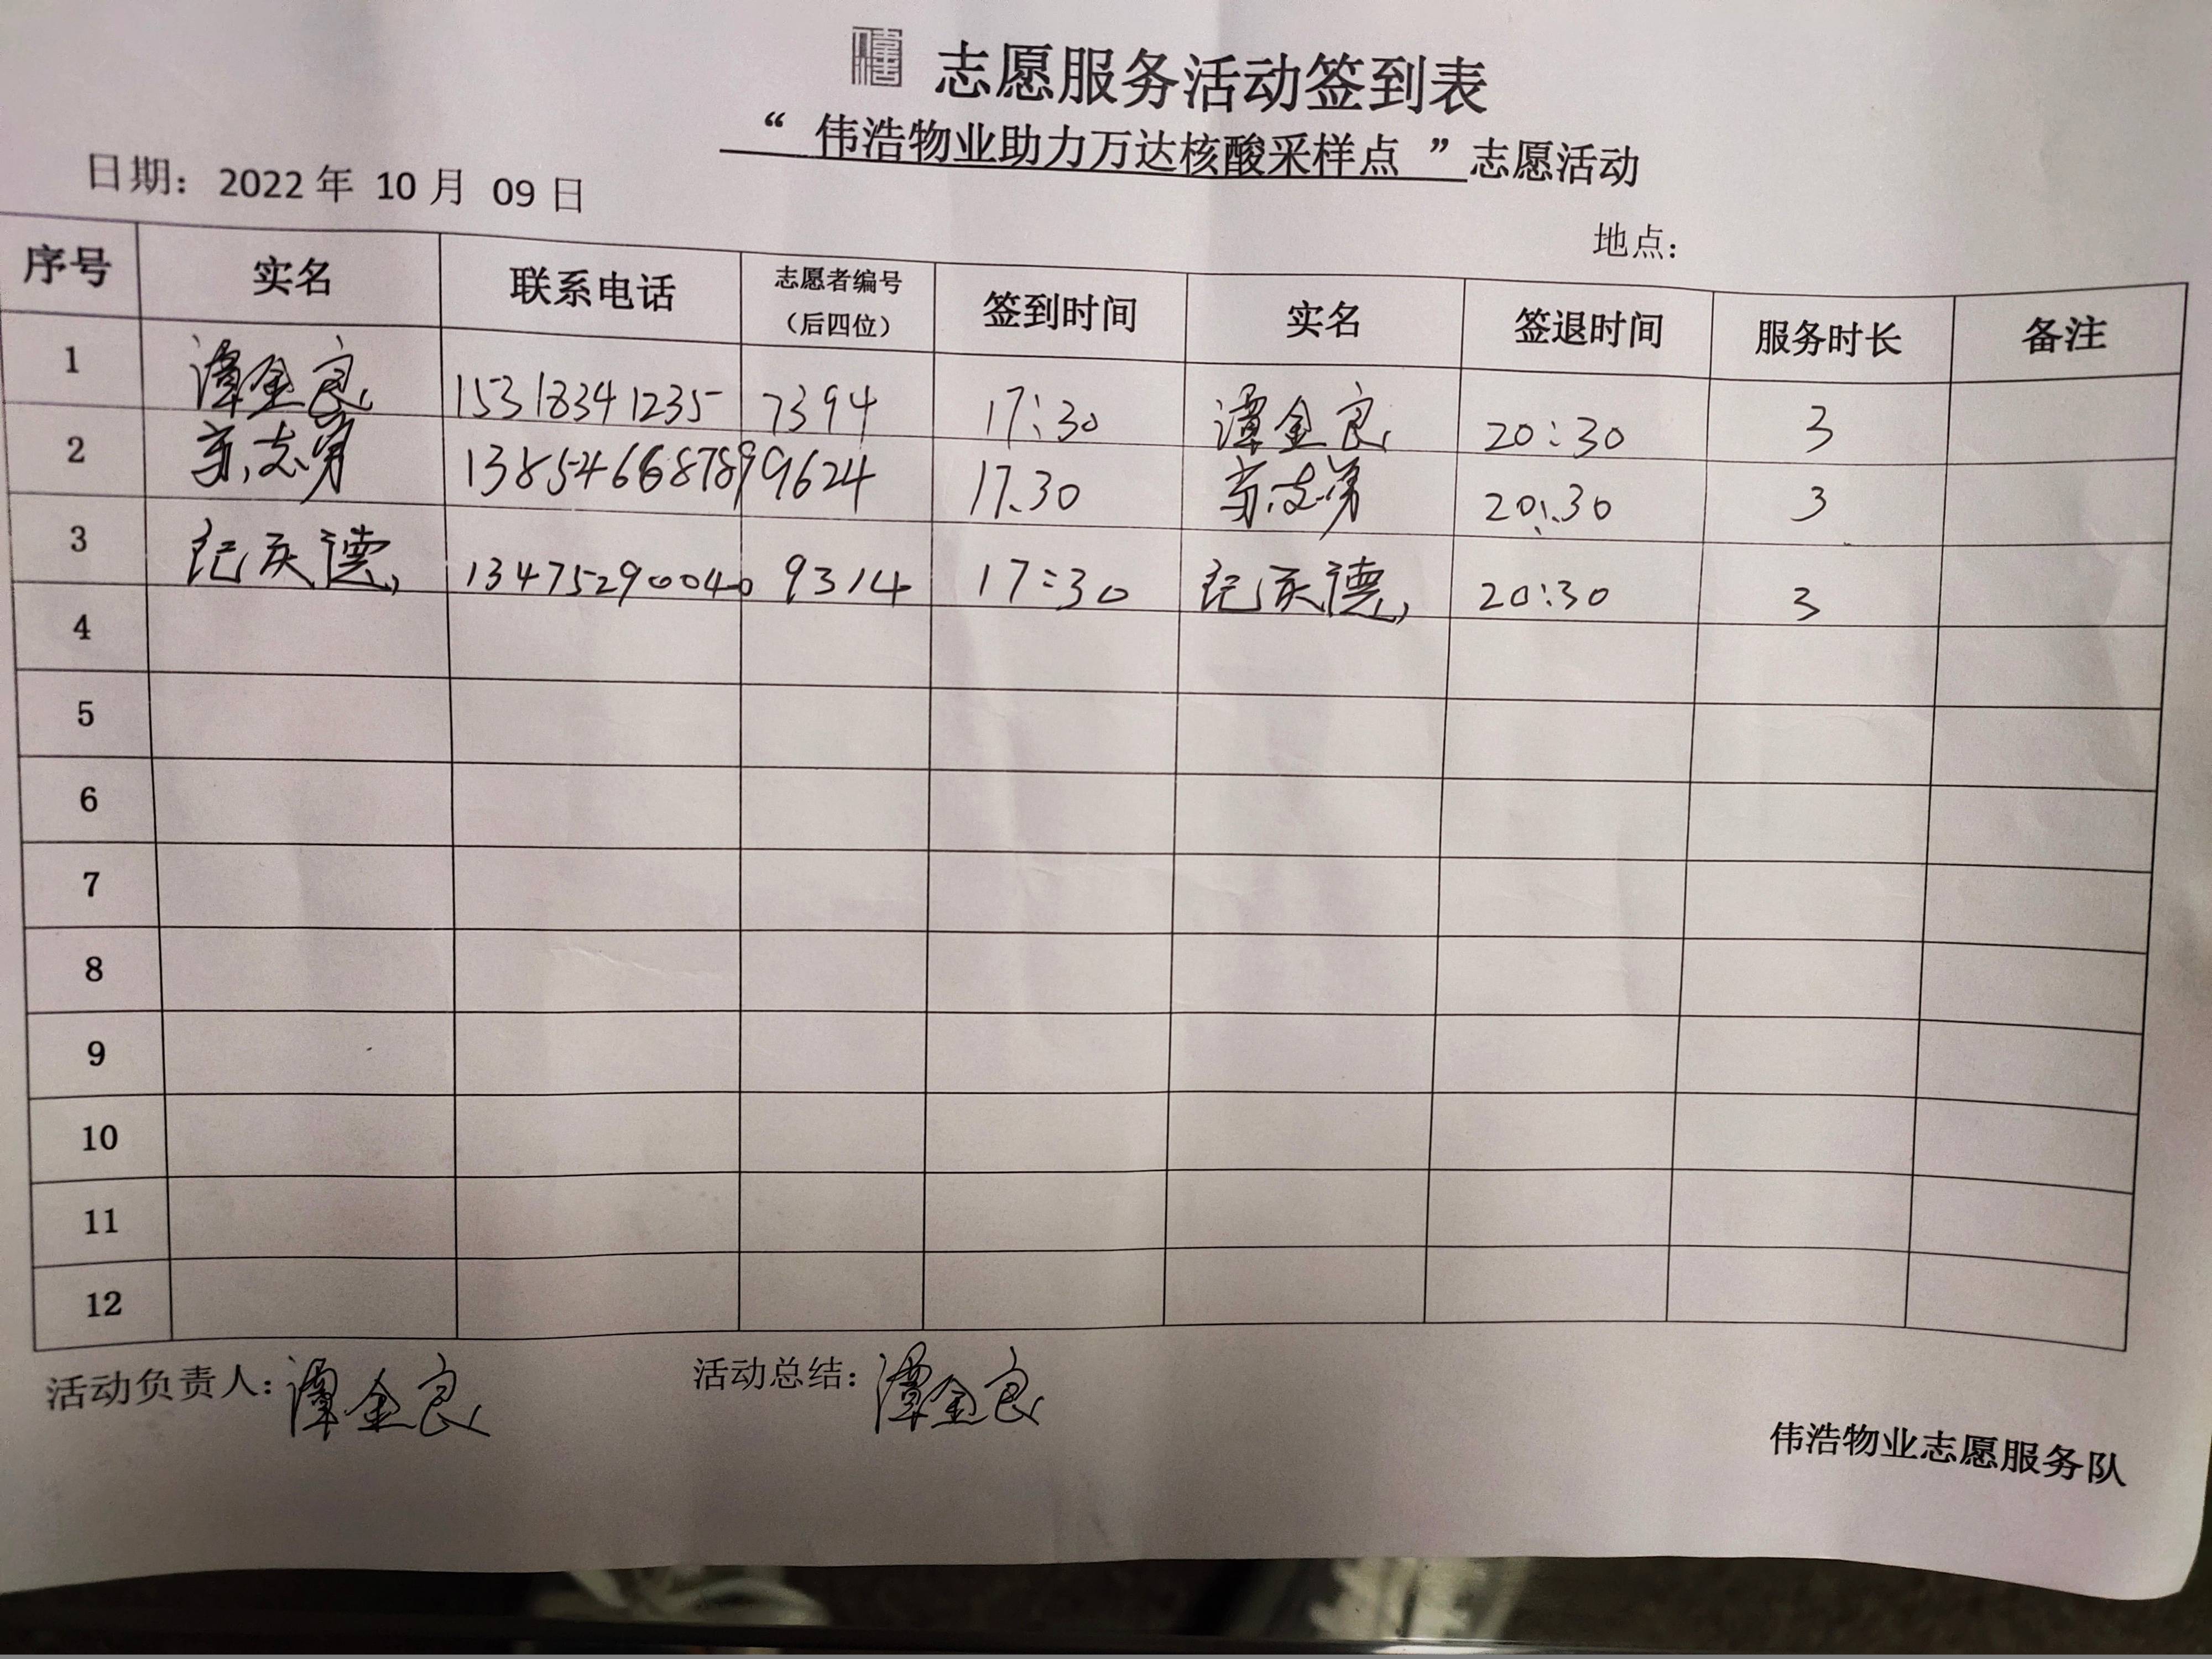 志愿服务活动签到表
“ 伟浩物业助力万达核酸采样点 ”志愿活动
日期：2022 年 10 月 09 日
地点：
序号 实名 联系电话 志愿者编号（后四位） 签到时间 实名 签退时间 服务时长 备注
1 谭金良 15318341235 7394 17:30 谭金良 20:30 3
2 13854668789 9624 17.30 20:30 3
3 纪庆德 13475290040 9314 17:30 纪庆德 20:30 3
4
5
6
7
8
9
10
11
12
活动负责人：谭金良 活动总结：谭金良
伟浩物业志愿服务队